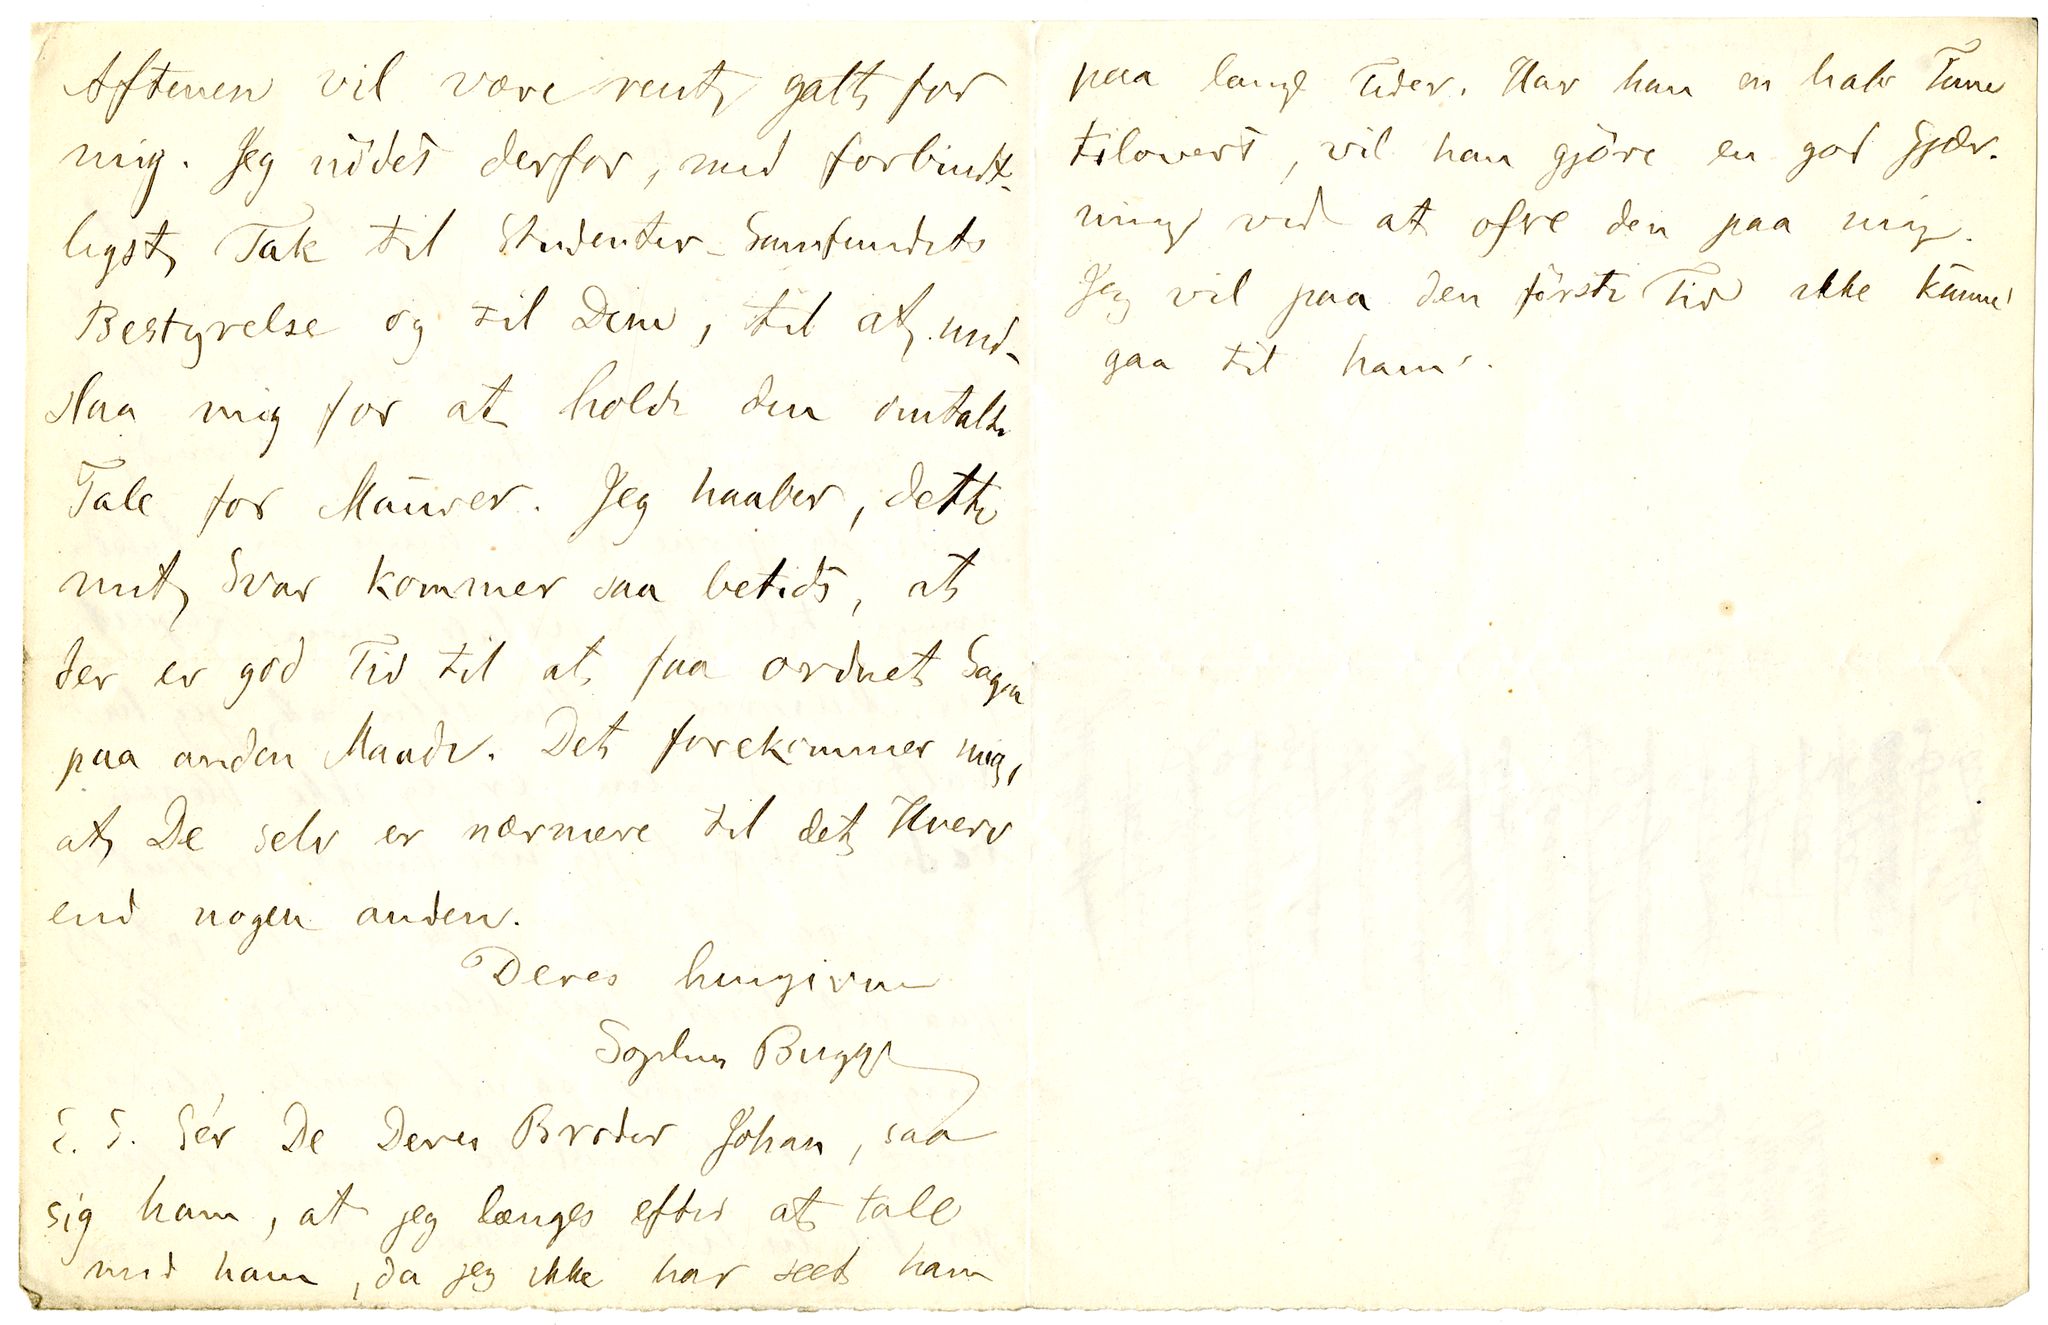 Aftenen vil være rent galt for
mig. Jeg nödes derfor, med forbindt-
ligst Tak til Studenter-Samfundets
Bestyrelse og til Dem, til at und-
slaa mig for at holde den omtalte
Tale for Maurer. Jeg haaber, dette
mit Svar kommer saa betids, at
der er god Tid til at faa ordnet Sagen
paa anden Maade. Det forekommer mig,
at De selv er nærmere til det Hverv
end nogen anden.
Deres hengivne
Sophus Bugge
E. S. Sér De Deres Broder Johan, saa
sig ham, at jeg længes efter at tale
med ham, da jeg ikke har seet ham
paa lange Tider. Har han en halv Time
tilovers, vil han gjöre en god Gjær-
ning ved at ofre den paa mig.
Jeg vil paa den förste Tid ikke kunne
gaa til ham.